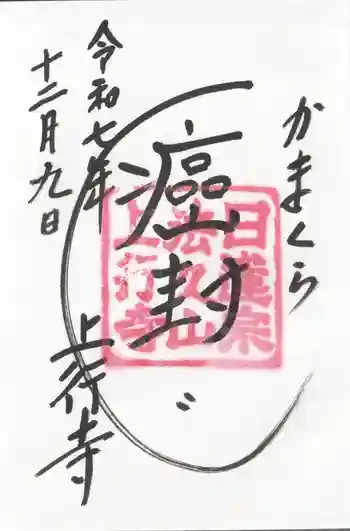 かまくら
癌封じ
日蓮宗
法久山
上行寺
令和七年
十二月九日
上行寺